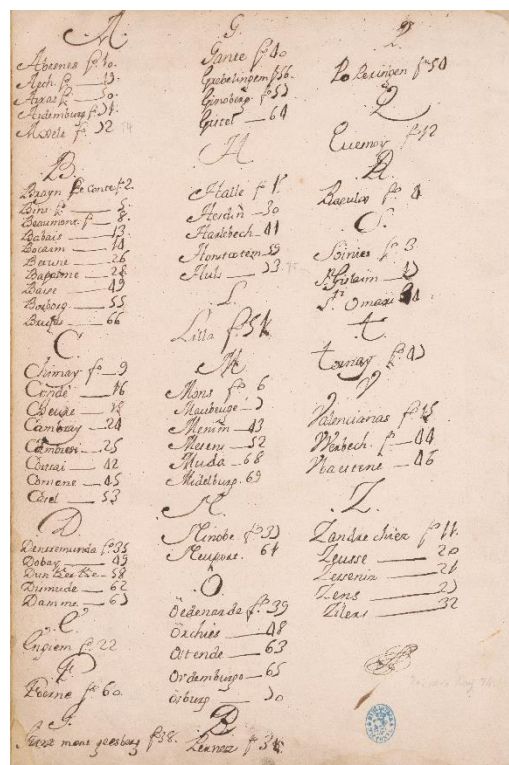 A.
Avesnes fº 10.
Aeth fº — 19.
Arras fº — 30.
Audemburg fº 71.
Axele fº 72
B.
Brayn le Conte fº 2.
Bins fº — 5.
Beaumont fº — 8.
Babais — 13.
Bocaim — 14
Bavine — 26
Bapaume — 28
Basse — 49
Borborg — 55
Bruges — 66
C.
Chimay fº — 9
Condé — 16
Cheure — 18
Cambray — 24
Cambresi — 25
Correai — 42
Comiane — 45
Casel — 53
D
Denremunda fº 35
Dobay — 49
Dun kerke — 58
Dumude — 62
Damme — 67
E
Engiem fº 22
F
Foerne fº 60.
G.
fº 38.
G.
Gante fº 40
Grebelingem fº 56.
Ginoberg fº 57
Gistel — 64
H
Halle fº 1.
Herdin — 30
Harlebech — 41
Honscotem — 59
Huls — 73
L.
Lilla fº 51
M
Mons fº 6
Maubruge — 7
Menim — 43
Mesens — 52
Muda — 68
Midelburg. 69
N
Ninobe fº 37
Neupore. 61
O
Oedenarda fº 39
Orchies — 48
Ostende — 63
Ordemburgo — 65
Osburg — 70
P
fº 34
P.
Poperingen fº 54
Q
Quesnoy fº 12
R
Raeulx fº 4
S.
Soinies fº 3
St Gislain — 17
St Omaer 31
T
Tornay fº 47
V
Valencianas fº 15
Werbech. fº — 44
Wautene — 46
Z.
Zandre chiez fº 11.
Zeusse — 20
Zessenin — 21
Zens — 27
Zilers — 32